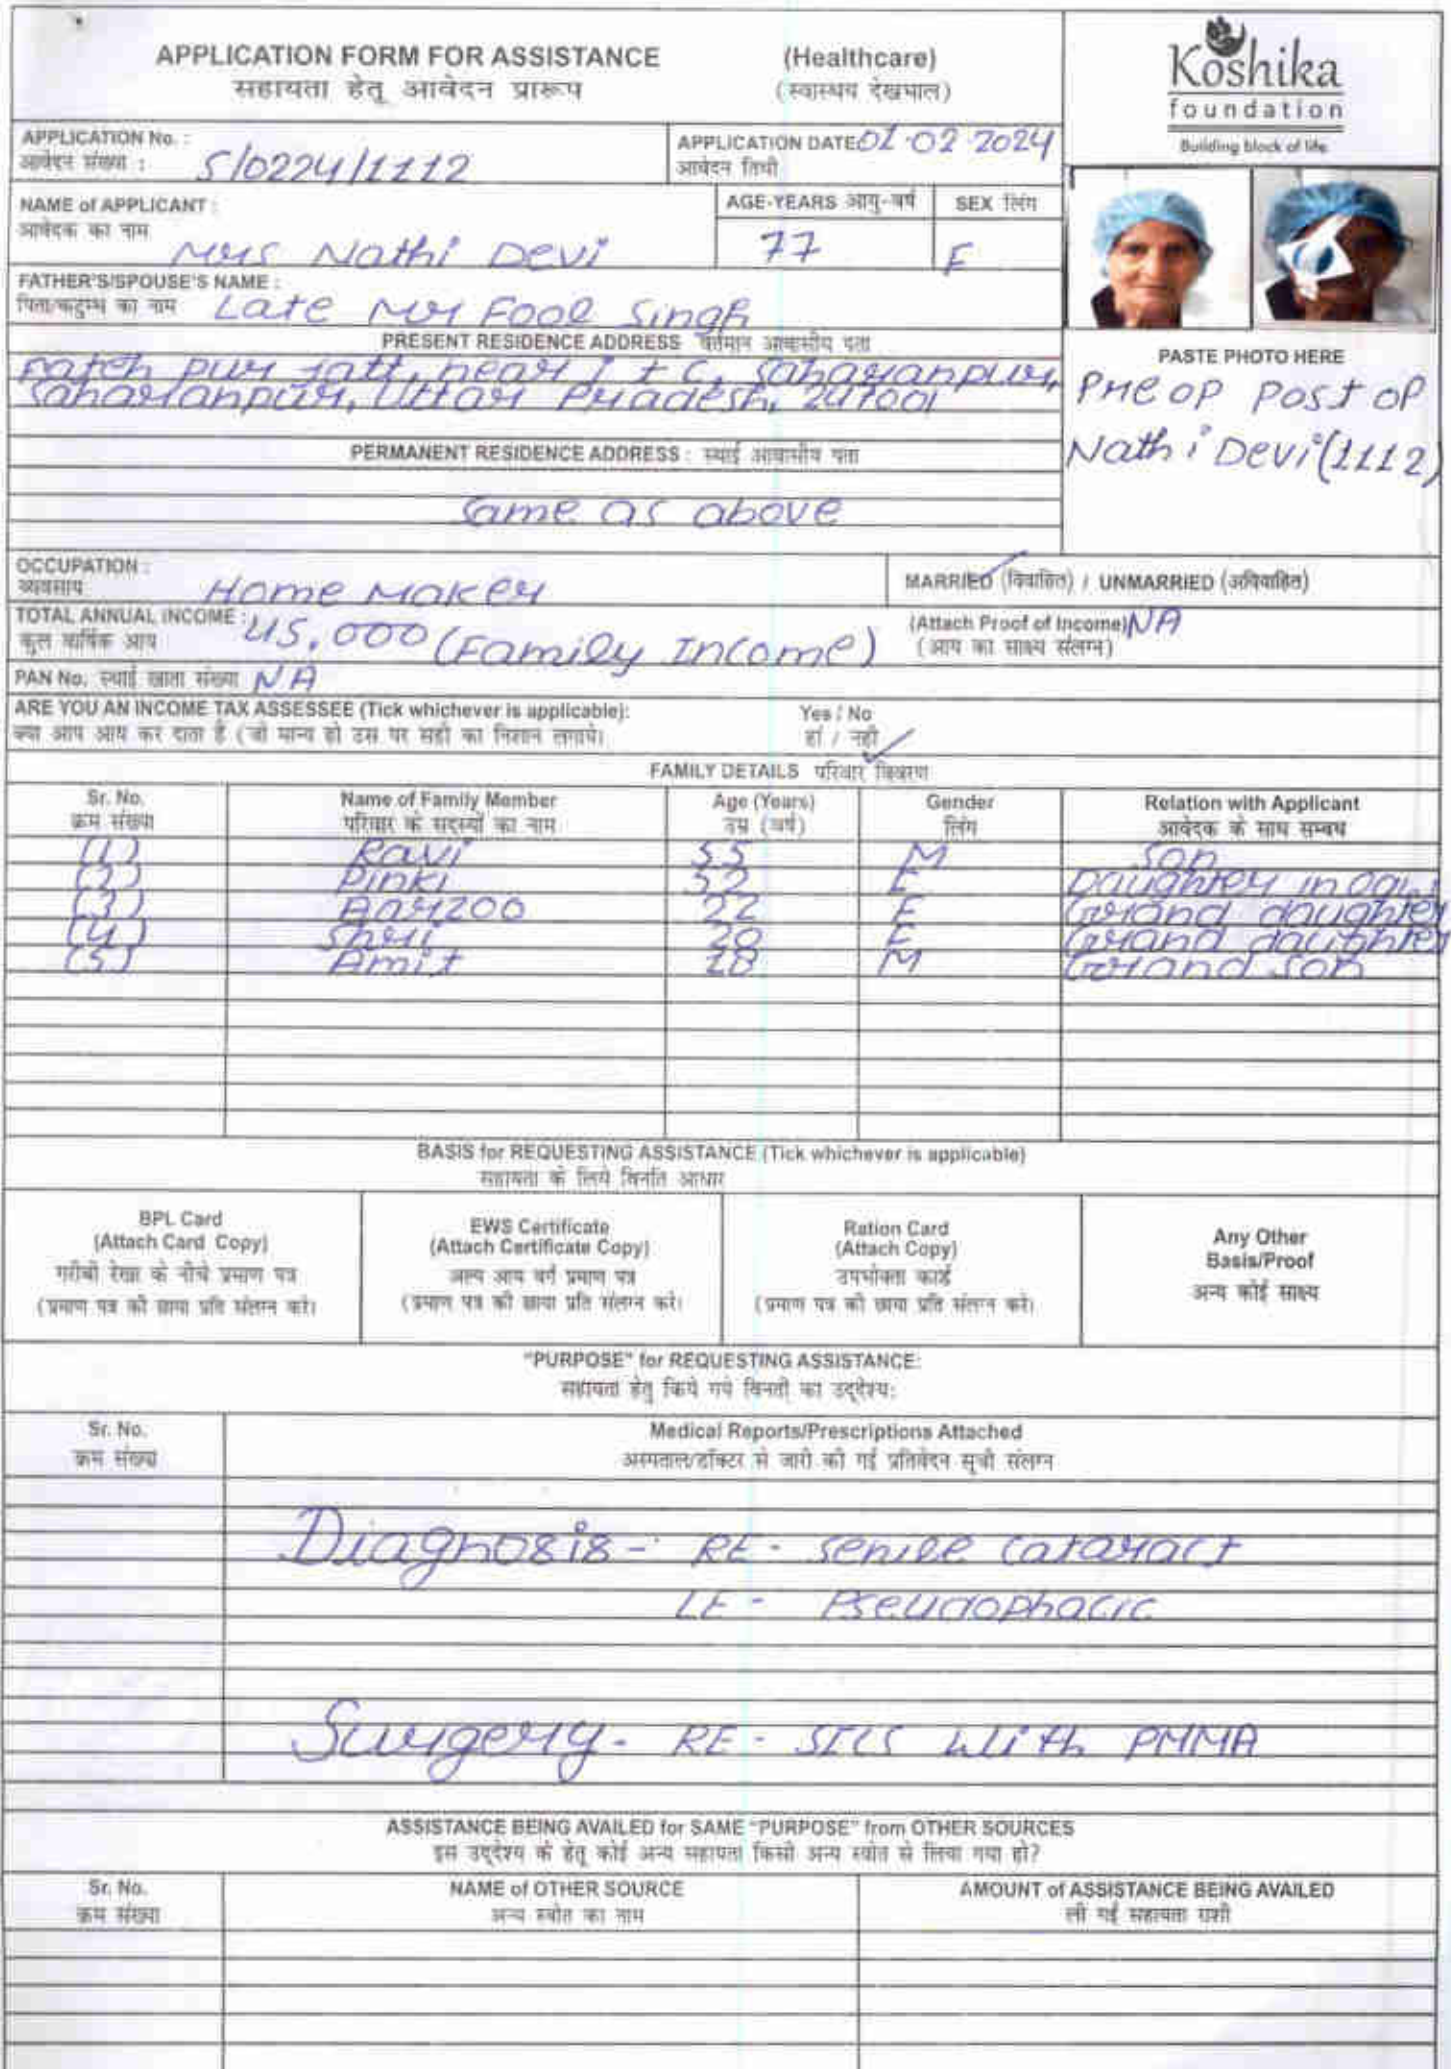 APPLICATION FORM FOR ASSISTANCE (Healthcare)
सहायता हेतू आवेदन प्रारूप (स्वास्थय देखभाल)
Koshika
foundation
Building block of life
APPLICATION No. :
आवेदन संख्या : S/0224/1112
APPLICATION DATE 01-02-2024
आवेदन तिथी
NAME of APPLICANT :
आवेदक का नाम Mrs Nathi Devi
AGE-YEARS आयु-वर्ष 77
SEX लिंग F
FATHER'S/SPOUSE'S NAME :
पिता/कटुम्ब का नाम Late Mr Fool Singh
PRESENT RESIDENCE ADDRESS वर्तमान आवासीय पता
Fateh pur Jatt, near I T C, Saharanpur,
Saharanpur, Uttar Pradesh, 247001
PASTE PHOTO HERE
Pre OP Post OP
Nathi Devi (1112)
PERMANENT RESIDENCE ADDRESS : स्थाई आवासीय पता
Same as above
OCCUPATION :
व्यवसाय Home Maker
MARRIED (विवाहित) / UNMARRIED (अविवाहित)
TOTAL ANNUAL INCOME :
कुल वार्षिक आय 45,000 (Family Income)
(Attach Proof of Income) NA
(आय का साक्ष्य संलग्न)
PAN No. स्थाई खाता संख्या NA
ARE YOU AN INCOME TAX ASSESSEE (Tick whichever is applicable): Yes / No
क्या आप आय कर दाता है (जो मान्य हो उस पर सही का निशान लगाये। हां / नही
FAMILY DETAILS परिवार विवरण
Sr. No. Name of Family Member Age (Years) Gender Relation with Applicant
क्रम संख्या परिवार के सदस्यों का नाम उम्र (वर्ष) लिंग आवेदक के साथ सम्बंध
(1) Ravi 55 M Son
(2) Pinki 52 F Daughter in oaw
(3) Aarzoo 22 F Grand daughter
(4) Shri 20 F Grand daughter
(5) Amit 18 M Grand son
BASIS for REQUESTING ASSISTANCE (Tick whichever is applicable)
सहायता के लिये विनति आधार
BPL Card
(Attach Card Copy)
गरीबी रेखा के नीचे प्रमाण पत्र
(प्रमाण पत्र की छाया प्रति संलग्न करे।
EWS Certificate
(Attach Certificate Copy)
अल्प आय वर्ग प्रमाण पत्र
(प्रमाण पत्र की छाया प्रति संलग्न करे।
Ration Card
(Attach Copy)
उपभोक्ता कार्ड
(प्रमाण पत्र की छाया प्रति संलग्न करे।
Any Other
Basis/Proof
अन्य कोई साक्ष्य
"PURPOSE" for REQUESTING ASSISTANCE:
सहायता हेतु किये गये विनती का उद्देश्य:
Sr. No. Medical Reports/Prescriptions Attached
क्रम संख्या अस्पताल/डॉक्टर से जारी की गई प्रतिवेदन सूची संलग्न
Diagnosis - RE - Senile Cataract
LE - Pseudophacic
Surgery - RE - SICS with PMMA
ASSISTANCE BEING AVAILED for SAME "PURPOSE" from OTHER SOURCES
इस उद्देश्य के हेतू कोई अन्य सहायता किसी अन्य स्त्रोत से लिया गया हो?
Sr. No. NAME of OTHER SOURCE AMOUNT of ASSISTANCE BEING AVAILED
क्रम संख्या अन्य स्त्रोत का नाम ली गई सहायता राशी